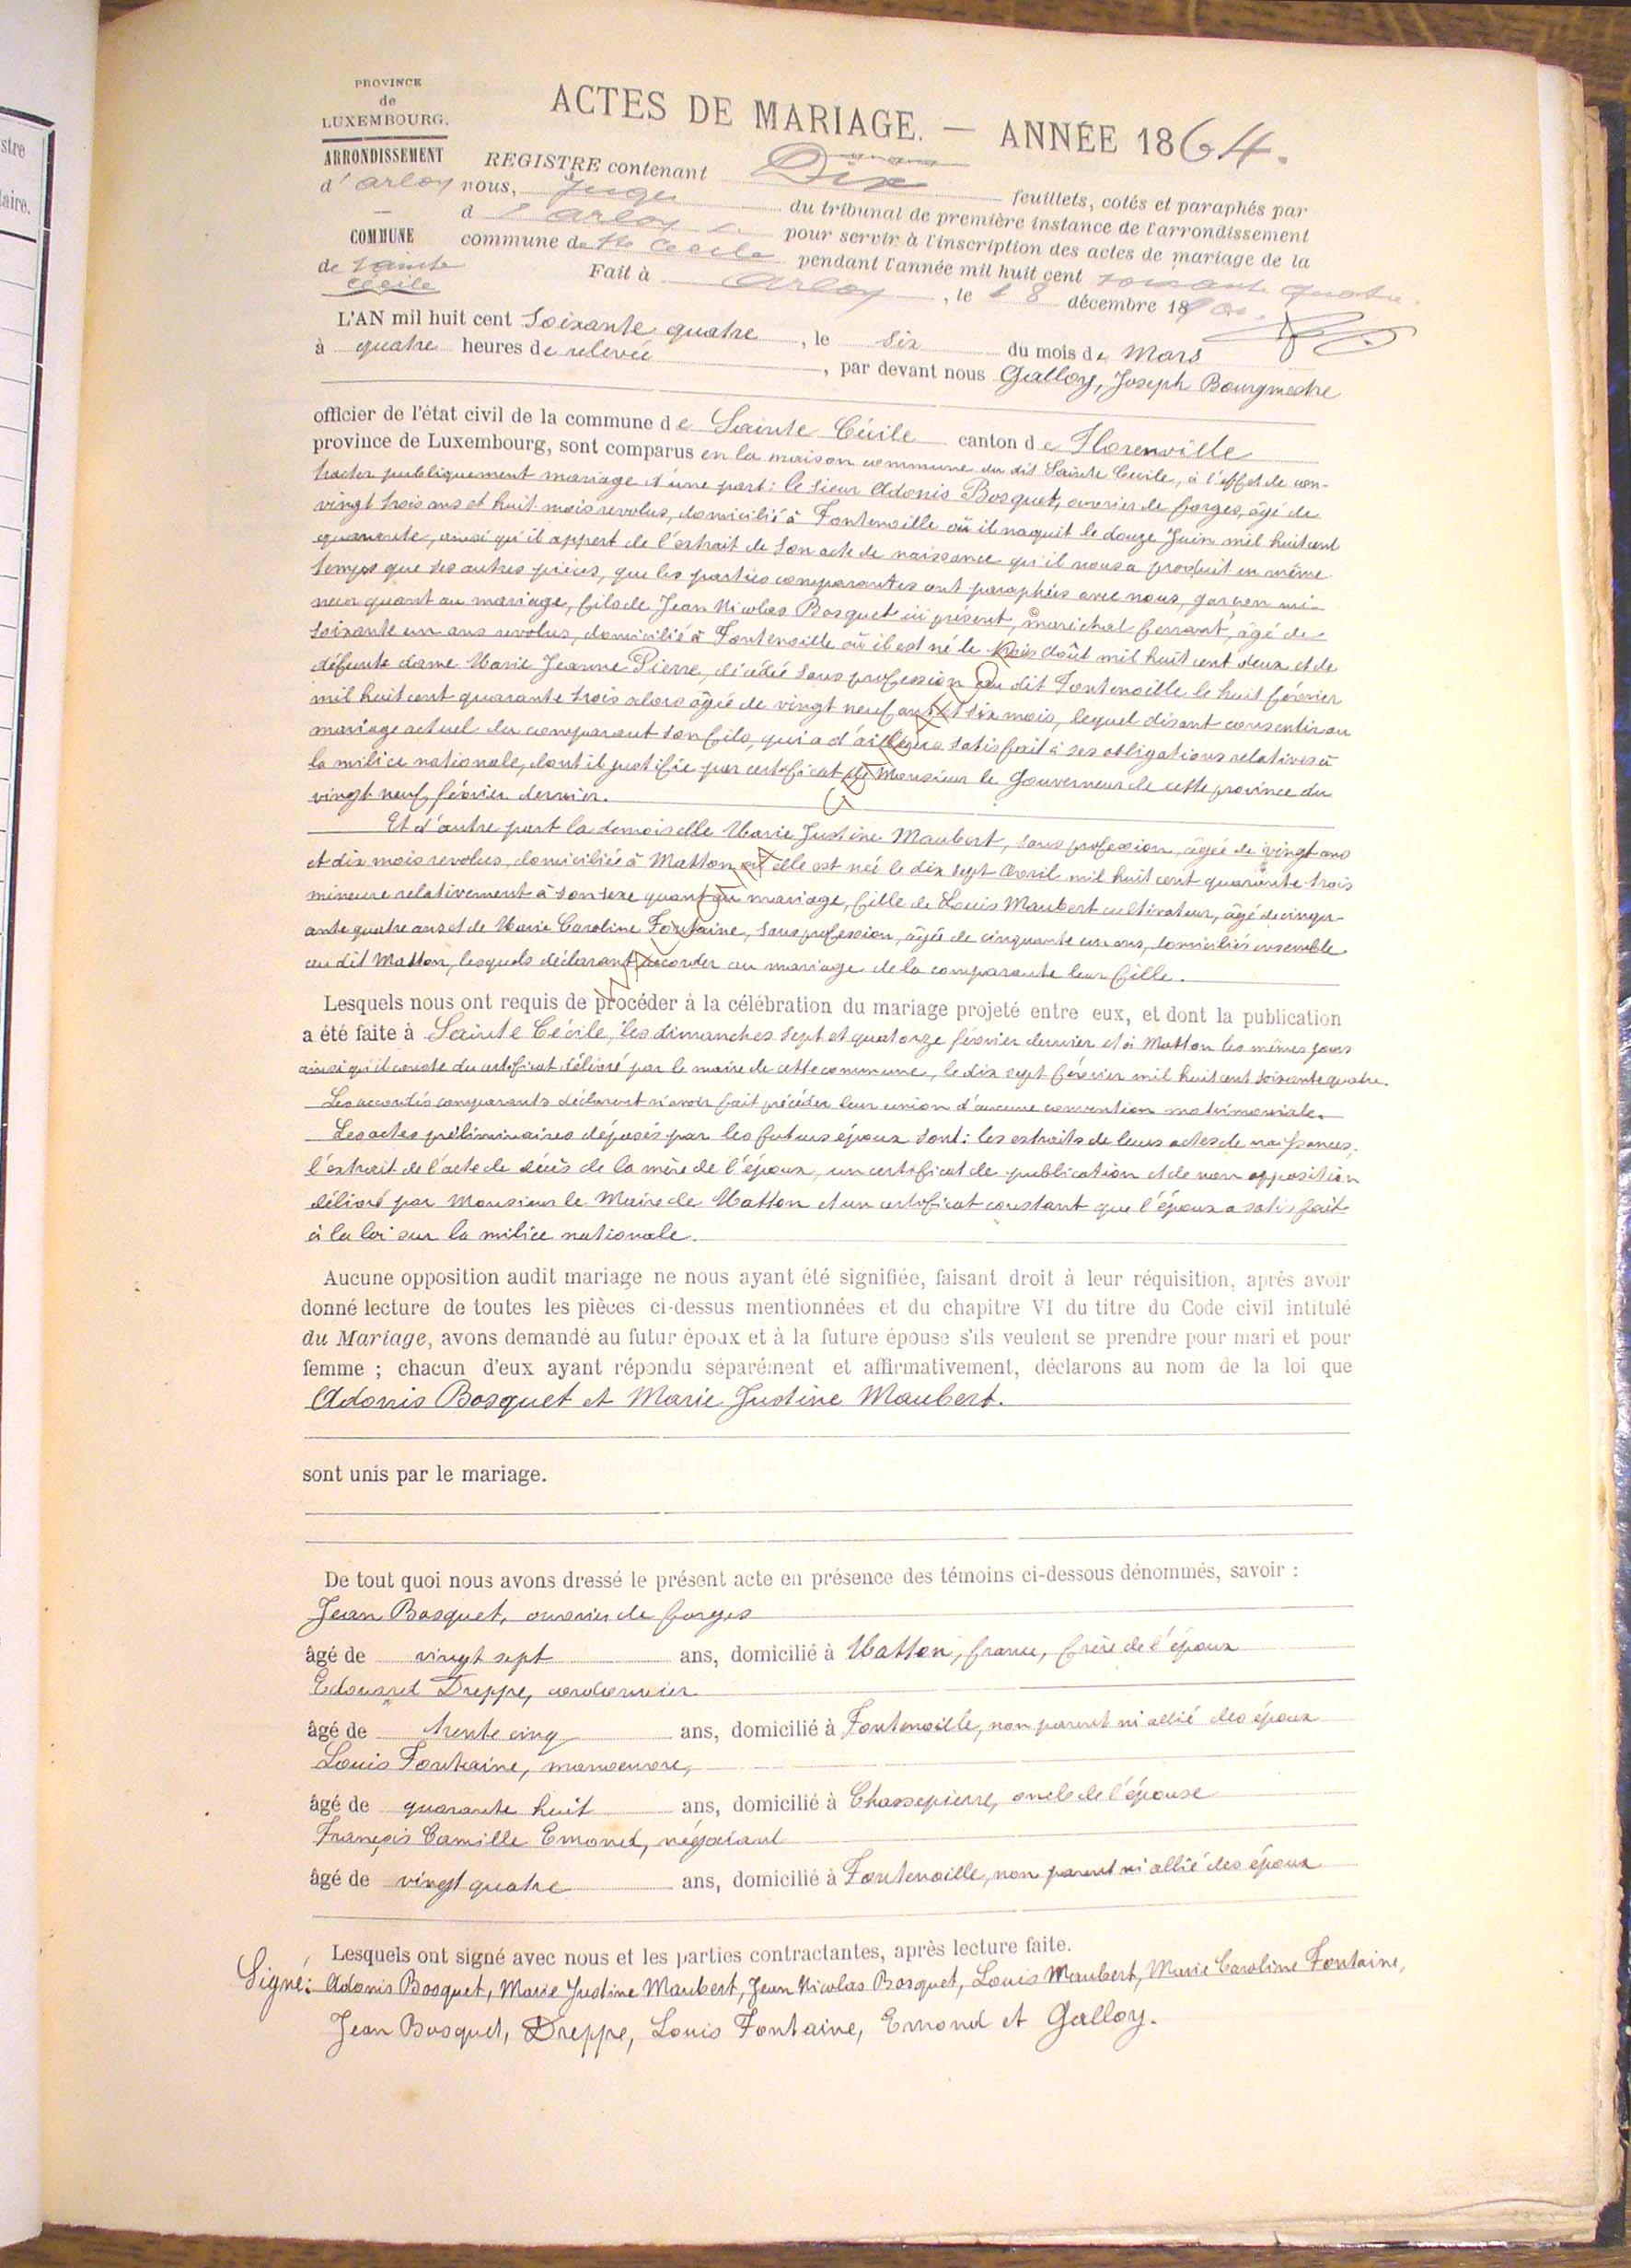 stre
laire.
PROVINCE
de
LUXEMBOURG.
ARRONDISSEMENT
d'arlon
COMMUNE
de Sainte
Cécile
ACTES DE MARIAGE. — ANNÉE 1864.
REGISTRE contenant Dix feuillets, cotés et paraphés par
nous, Juge du tribunal de première instance de l'arrondissement
d'arlon pour servir à l'inscription des actes de mariage de la
commune de Ste Cecile pendant l'année mil huit cent soixante quatre.
Fait à Arlon, le 18 décembre 18
L'AN mil huit cent Soixante quatre, le six du mois de Mars
à quatre heures de relevée, par devant nous Galloy, Joseph Bourgmestre
officier de l'état civil de la commune de Sainte Cécile canton de Florenville
province de Luxembourg, sont comparus en la maison commune du dit Sainte Cecile, à l'effet de con-
tracter publiquement mariage d'une part: le sieur Adonis Bosquet, ouvrier de forges, âgé de
vingt trois ans et huit mois revolus, domicilié à Fontenoille où il naquit le douze Juin mil huit cent
quarante, ainsi qu'il appert de l'extrait de son acte de naissance qu'il nous a produit en même
temps que les autres pièces, que les parties comparantes ont paraphées avec nous, garçon mi-
neur quant au mariage, fils de Jean Nicolas Bosquet ici présent, maréchal ferrant, âgé de
soixante un ans revolus, domicilié à Fontenoille où il est né le trois Août mil huit cent deux et de
défunte dame Marie Jeanne Pierre, décédée sans profession au dit Fontenoille le huit février
mil huit cent quarante trois alors âgée de vingt neuf ans et six mois, lequel disant consentir au
mariage actuel du comparant son fils, qui a d'ailleurs satisfait à ses obligations relatives à
la milice nationale, dont il justifie par certificat de Monsieur le Gouverneur de cette province du
vingt neuf février dernier.
Et d'autre part la demoiselle Marie Justine Maubert, sans profession, âgée de vingt ans
et dix mois revolus, domiciliée à Matton où elle est née le dix sept Avril mil huit cent quarante trois
mineure relativement à son sexe quant au mariage, fille de Louis Maubert cultivateur, âgé de cinqu-
ante quatre ans et de Marie Caroline Fontaine, sans profession, âgée de cinquante un ans, domiciliés ensemble
au dit Matton, lesquels déclarant accorder au mariage de la comparante leur fille.
Lesquels nous ont requis de procéder à la célébration du mariage projeté entre eux, et dont la publication
a été faite à Sainte Cécile, les dimanches sept et quatorze février dernier et à Matton les mêmes jours
ainsi qu'il conste du certificat délivré par le maire de cette commune, le dix sept février mil huit cent soixante quatre.
Les accordés comparants déclarent n'avoir fait précéder leur union d'aucune convention matrimoniale.
Les actes préliminaires déposés par les futurs époux sont: les extraits de leurs actes de naissances,
l'extrait de l'acte de décès de la mère de l'époux, un certificat de publication et de non opposition
délivré par Monsieur le Maire de Matton et un certificat constant que l'époux a satisfait
à la loi sur la milice nationale.
Aucune opposition audit mariage ne nous ayant été signifiée, faisant droit à leur réquisition, après avoir
donné lecture de toutes les pièces ci-dessus mentionnées et du chapitre VI du titre du Code civil intitulé
du Mariage, avons demandé au futur époux et à la future épouse s'ils veulent se prendre pour mari et pour
femme ; chacun d'eux ayant répondu séparément et affirmativement, déclarons au nom de la loi que
Adonis Bosquet et Marie Justine Maubert.
sont unis par le mariage.
De tout quoi nous avons dressé le présent acte en présence des témoins ci-dessous dénommés, savoir :
Jean Bosquet, ouvrier de forges
âgé de vingt sept ans, domicilié à Matton, france, frère de l'époux
Edouard Dreppe, cordonnier
âgé de trente cinq ans, domicilié à Fontenoille, non parent ni allié des époux
Louis Fontaine, manoeuvre,
âgé de quarante huit ans, domicilié à Chassepierre, oncle de l'épouse
François Camille Emond, négociant
âgé de vingt quatre ans, domicilié à Fontenoille, non parent ni allié des époux
Lesquels ont signé avec nous et les parties contractantes, après lecture faite.
Signé: Adonis Bosquet, Marie Justine Maubert, Jean Nicolas Bosquet, Louis Maubert, Marie Caroline Fontaine,
Jean Bosquet, Dreppe, Louis Fontaine, Emond et Galloy.